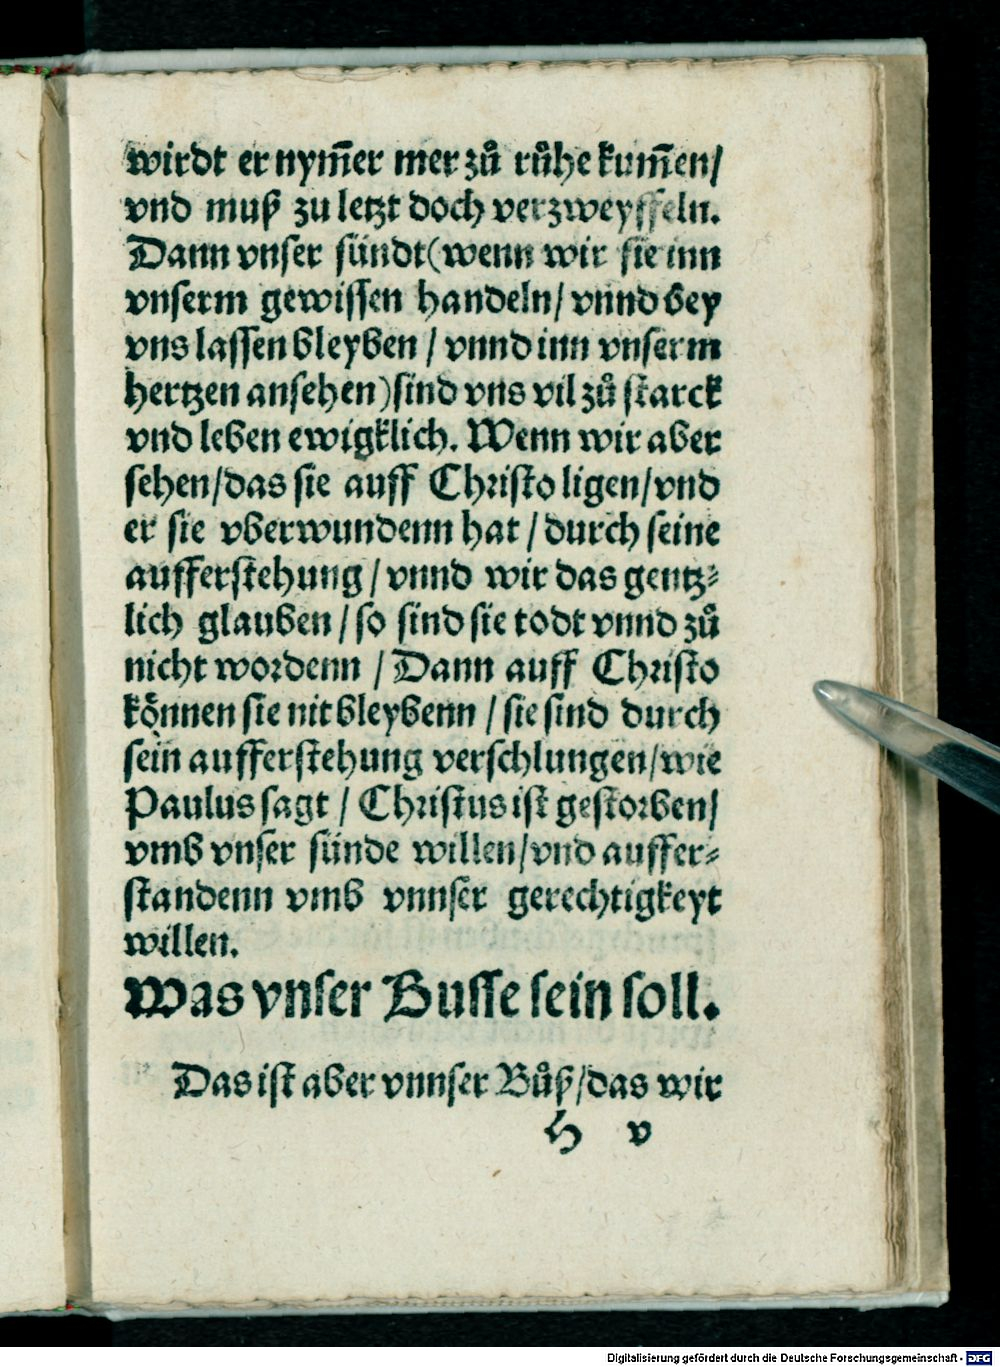 wirdt er nym̃er mer zů růhe kum̃en/
vnd muß zu letzt doch verzweyffeln.
Dann vnser sündt(wenn wir sie inn
vnserm gewissen handeln/ vnnd bey
vns lassen bleyben / vnnd inn vnserm
hertzen ansehen)sind vns vil zů starck
vnd leben ewigklich. Wenn wir aber
sehen/das sie auff Christo ligen/vnd
er sie vberwundenn hat / durch seine
aufferstehung / vnnd wir das gentz⸗
lich glauben / so sind sie todt vnnd zů
nicht wordenn / Dann auff Christo
können sie nit bleybenn / sie sind durch
sein aufferstehung verschlungen/wie
Paulus sagt / Christus ist gestorben/
vmb vnser sünde willen/vnd auffer⸗
standenn vmb vnnser gerechtigkeyt
willen.
Was vnser Busse sein soll.
Das ist aber vnnser Bůß/das wir
H v
Digitalisierung gefördert durch die Deutsche Forschungsgemeinschaft - DFG